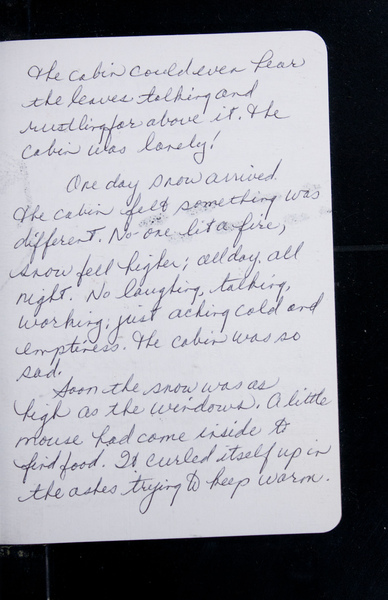 The cabin could even hear
the leaves talking and
rustling far above it. The
cabin was lonely!
One day snow arrived.
The cabin felt something was
different. No one lit a fire;
snow fell higher; all day, all
night. No laughing, talking,
working; just aching cold and
emptiness. The cabin was so
sad.
Soon the snow was as
high as the windows. A little
mouse had come inside to
find food. It curled itself up in
the ashes trying to keep warm.